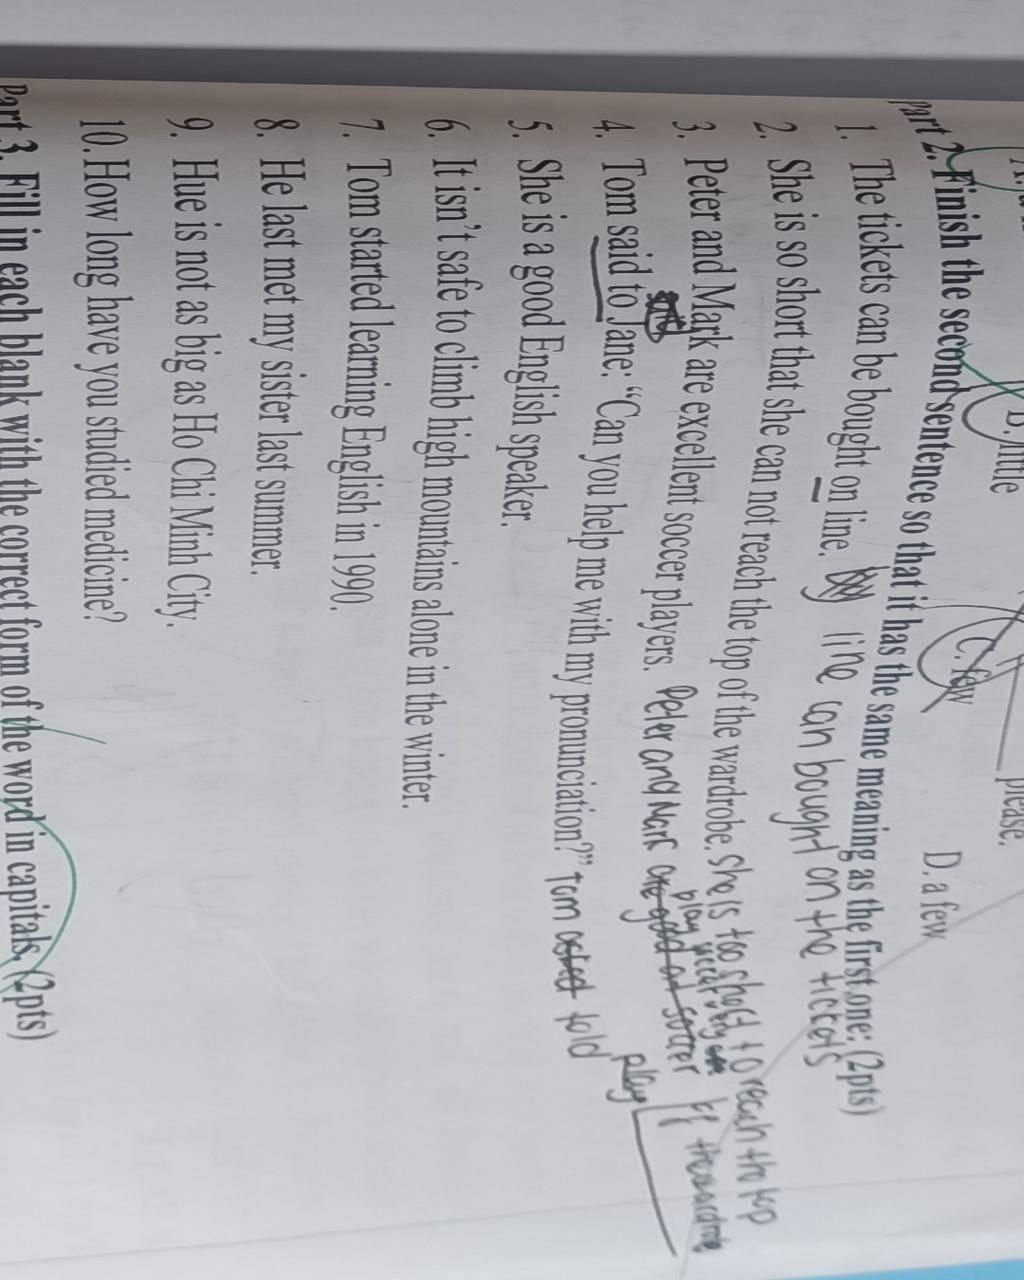 B. little
please.
C. few
D. a few
Part 2. Finish the second sentence so that it has the same meaning as the first one: (2pts)
1. The tickets can be bought on line. line can bought on the tickets
2. She is so short that she can not reach the top of the wardrobe. She is too short to reach the top
of the wardrobe
3. Peter and Mark are excellent soccer players. Peter and Mark are good at soccer
play soccer very
play
4. Tom said to Jane: “Can you help me with my pronunciation?” Tom asked told
5. She is a good English speaker.
6. It isn’t safe to climb high mountains alone in the winter.
7. Tom started learning English in 1990.
8. He last met my sister last summer.
9. Hue is not as big as Ho Chi Minh City.
10. How long have you studied medicine?
Part 3. Fill in each blank with the correct form of the word in capitals. (2pts)